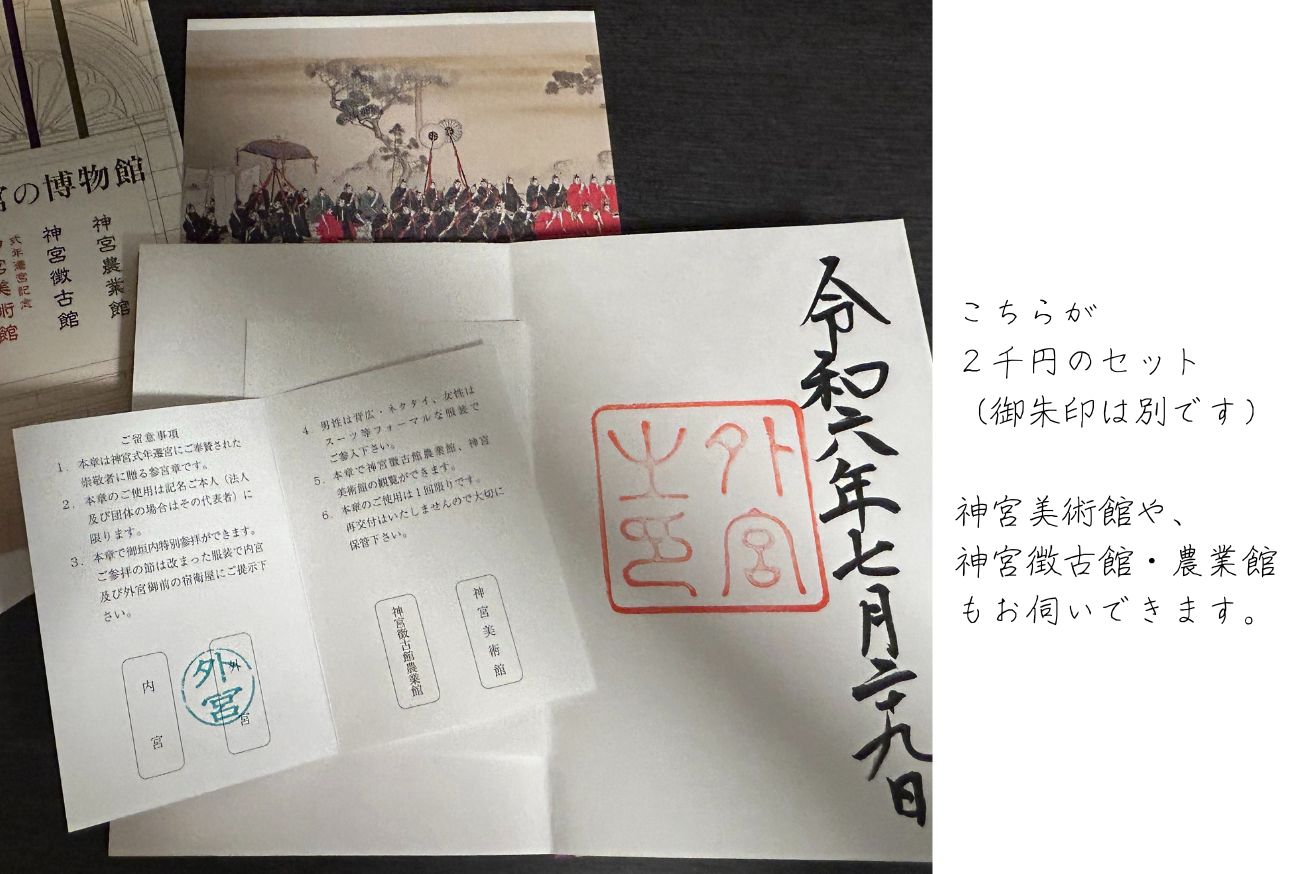 宮の博物館
神宮農業館
神宮徴古館
式年遷宮記念
神宮美術館
ご留意事項
1. 本章は神宮式年遷宮にご奉賛された
崇敬者に贈る参宮章です。
2. 本章のご使用は記名ご本人（法人
及び団体の場合はその代表者）に
限ります。
3. 本章で御垣内特別参拝ができます。
ご参拝の節は改まった服装で内宮
及び外宮御前の宿衛屋にご提示下
さい。
内宮
外宮
外宮
4. 男性は背広・ネクタイ、女性は
スーツ等フォーマルな服装で
ご参入下さい。
5. 本章で神宮徴古館農業館、神宮
美術館の観覧ができます。
6. 本章のご使用は1回限りです。
再交付はいたしませんので大切に
保管下さい。
神宮徴古館農業館
神宮美術館
令和六年七月二十九日
外宮
之印
こちらが
２千円のセット
（御朱印は別です）
神宮美術館や、
神宮徴古館・農業館
もお伺いできます。